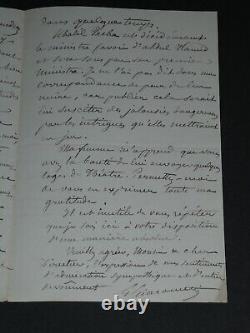 dans quelques temps.
Khalil Pacha est décidément
le ministre favori d'Abdul Hamid
et sera sous peu son premier
ministre. Je l'ai pas dit dans une
correspondance de peur de leur
nuire, car publier cela serait
lui susciter des jalousies dangereuses
par les intrigues qu'elles mettraient
en jeu.
Ma femme m'apprend que vous
avez la bonté de lui envoyer quelques
loges de théâtre. Permettez-moi
de vous en exprimer toute ma
gratitude.
Il est inutile de vous répéter
que je suis ici à votre disposition
d'une manière absolue.
Veuillez agréer, Monsieur & cher
directeur, l'expression de mes sentiments
d'admiration sympathique et d'entier
dévouement